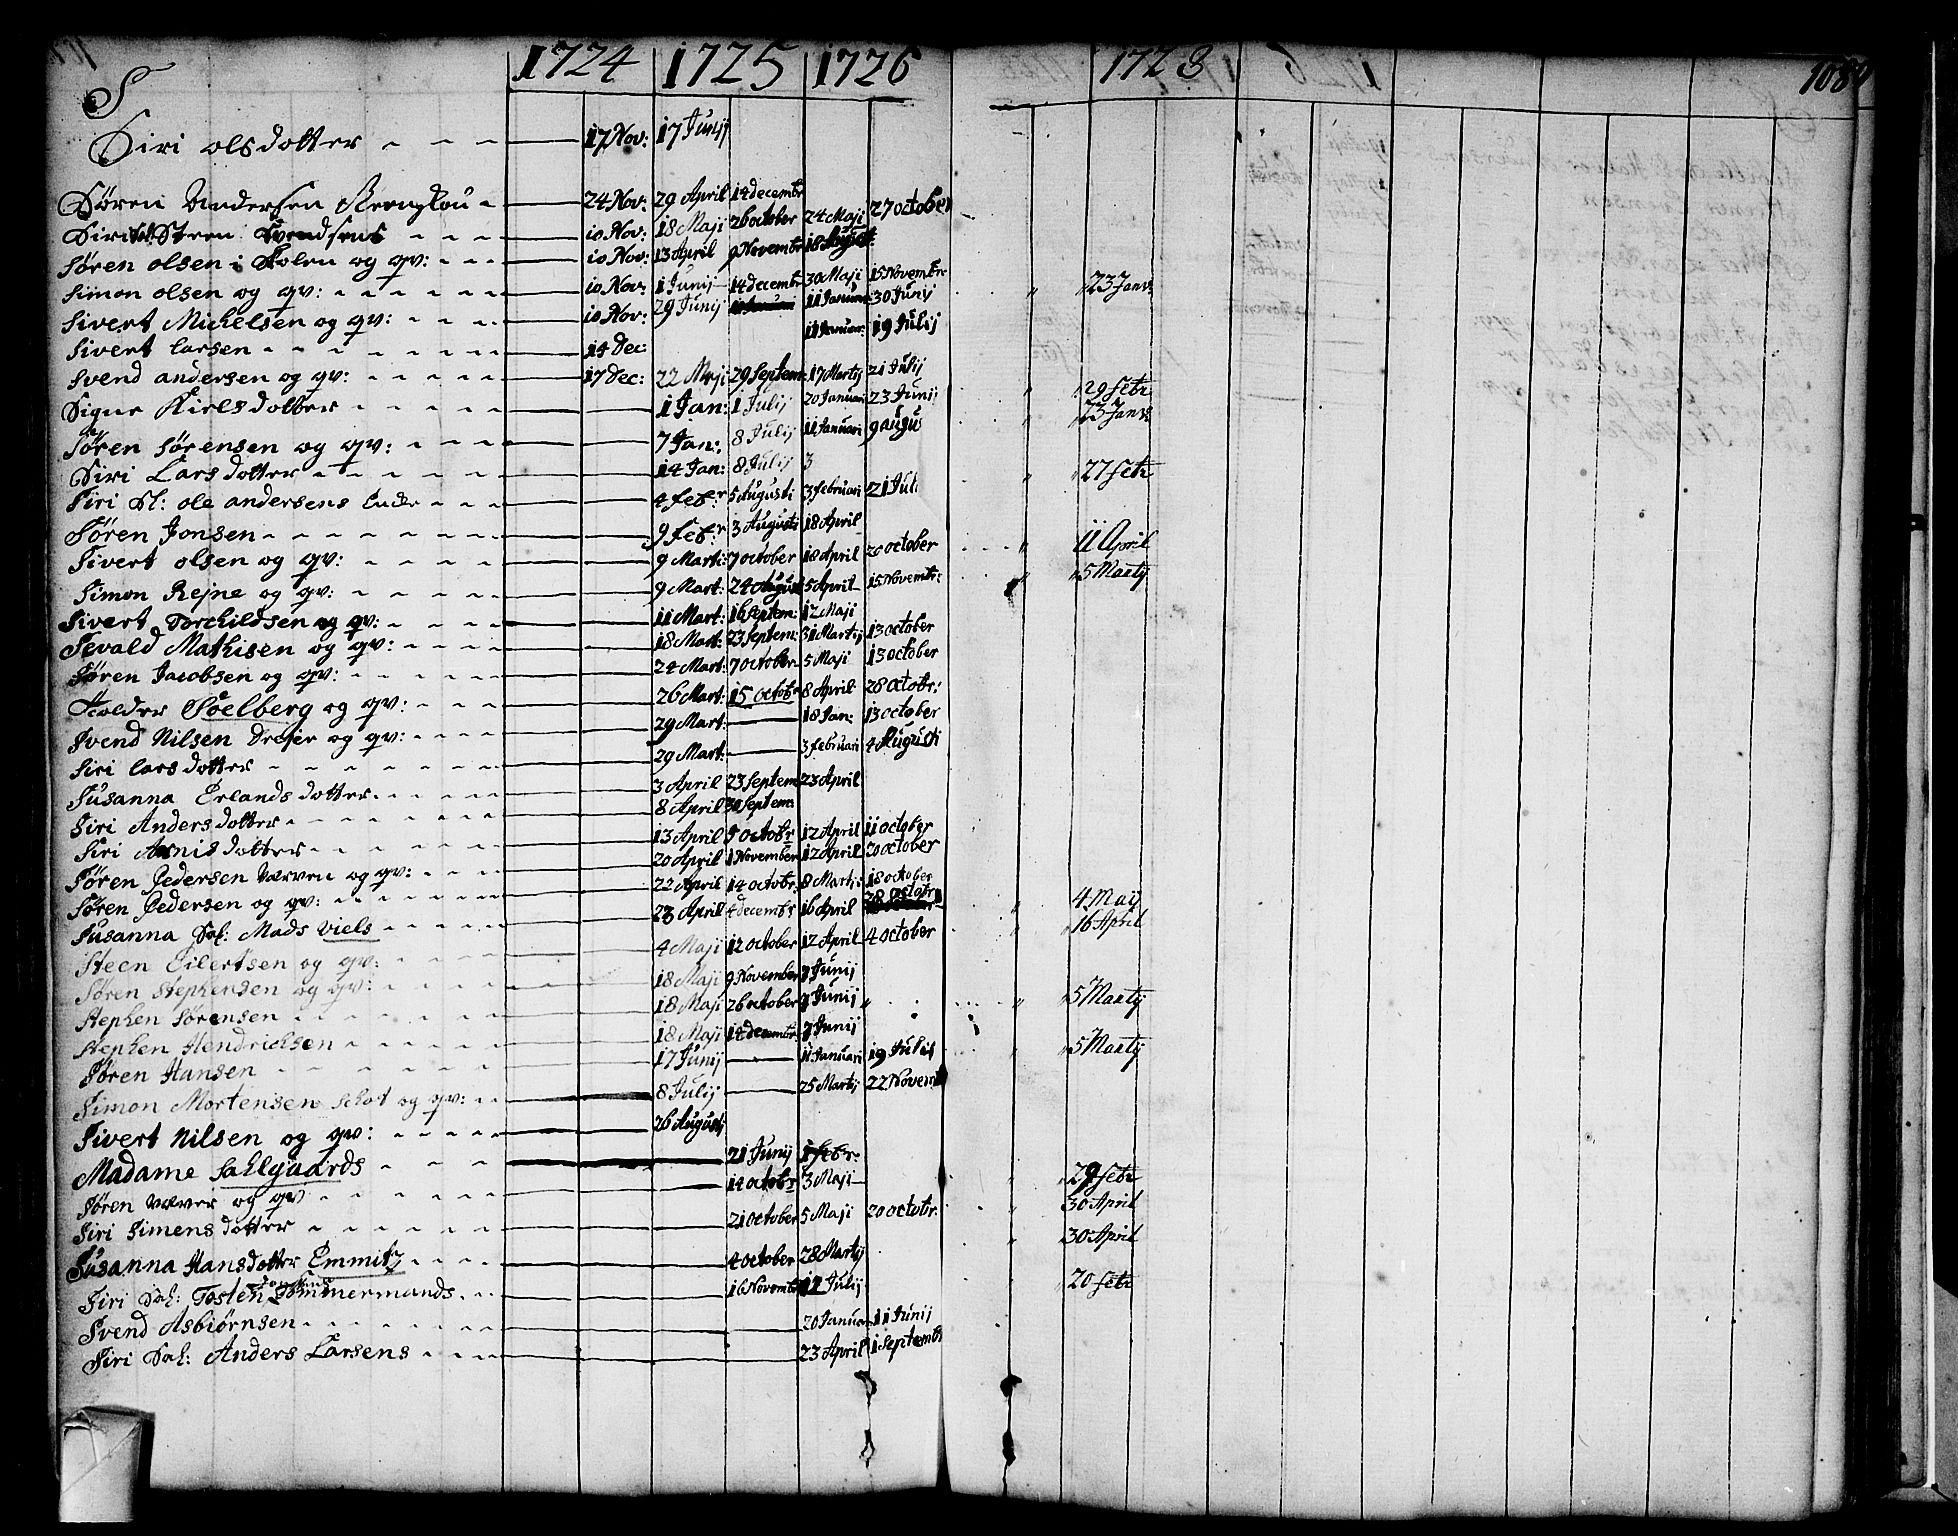 S 1724 1725 1726 1728 108
Siri olsdotter 17 Nov: 17 Junij
Sören Andersen 24 Nov: 29 April 14 decembr
Siri Steen Svendsens 10 Nov: 18 Maji 26 october 24 Maji 27 october
Sören olsen i Skolen og qv: 10 Nov: 13 April 9 Novembr 18 August
Simon olsen og qv: 10 Nov: 1 Junij 14 decembr 30 Maji 15 Novembr 23 Janv
Sivert Michelsen og qv: 10 Nov: 29 Junij 11 Januar 30 Junij
Sivert Larsen 14 Dec: 11 Januar: 19 Julij
Svend andersen og qv: 17 Dec: 22 Maji 29 Septem: 17 Martij 21 Julij
Signe Kielsdotter 1 Jan: 1 Julij 20 Januari 23 Junij 29 febr
Sören Sörensen og qv: 7 Jan: 8 Julij 11 Januari 9 augu 23 Janv
Siri Larsdotter 14 Jan: 8 Julij 3
Siri Sl: ole andersens Enke 4 feb:r 5 Augusti 3 februari 21 Jul 27 febr
Sören Jonsen 9 Feb:r 3 Augusti 18 April
Sivert olsen og qv: 9 Mart: 7 october 18 April 20 october 11 April
Simon Rejne og qv: 9 Mart: 24 August 5 April 15 Novembr: 5 Martij
Sivert Torchildsen og qv: 11 Mart: 16 Septem: 12 Maji
Sevald Mathisen og qv: 18 Mart: 23 Septem: 31 Martij 13 october
Sören Jacobsen og qv: 24 Mart: 7 october 5 Maji 13 october
Holder Soelberg og qv: 26 Mart: 15 octobr 8 April 28 octobr:
Svend Nilsen Dreier og qv: 29 Mart: 18 Jan: 13 october
Siri Larsdotter 29 Mart: 3 februari 4 Augusti
Susanna Erlandsdotter 3 April 23 Septem 23 April
Siri Andersdotter 8 April 30 Septem:
Siri Arnisdotter 13 April 5 octobr 12 April 11 october
Sören Pedersen Væven og qv: 20 April 1 November 12 April 20 october
Sören Pedersen og qv: 22 April 14 octobr: 8 Martij 18 october
Susanna Sal: Mads Viels 23 April 4 decembr 16 April 28 octobr 4 Maij
Steen Eilertsen og qv: 4 Maji 12 october 12 April 4 october 16 April
Sören Stephensen og qv: 18 Maji 9 November 7 Junij
Stephen Sörensen 18 Maji 26 october 7 Junij 5 Martij
Stephen Hendrichsen 18 Maji 14 decembr 7 Junij
Sören Hansen 17 Junij 11 Januari 19 Julii 5 Martij
Simon Mortensen Schot og qv: 8 Julij 25 Martij 22 Novem
Sivert Nilsen og qv: 26 Augusti
Madame Sahlgaards 21 Junij 1 febr:
Sören Væver og qv 14 octobr 3 Maji 29 febr
Siri Simensdotter 21 october 5 Maji 20 octobr: 30 April
Susanna Hansdotter Emmitz 4 october 28 Martij 30 April
Siri Sal: Tosten Tömmermands 16 Novembr 12 Julij 20 febr
Svend Asbiörnsen 20 Januar 11 Junij
Siri Sal: Anders Larsens 23 April 1 Septembr